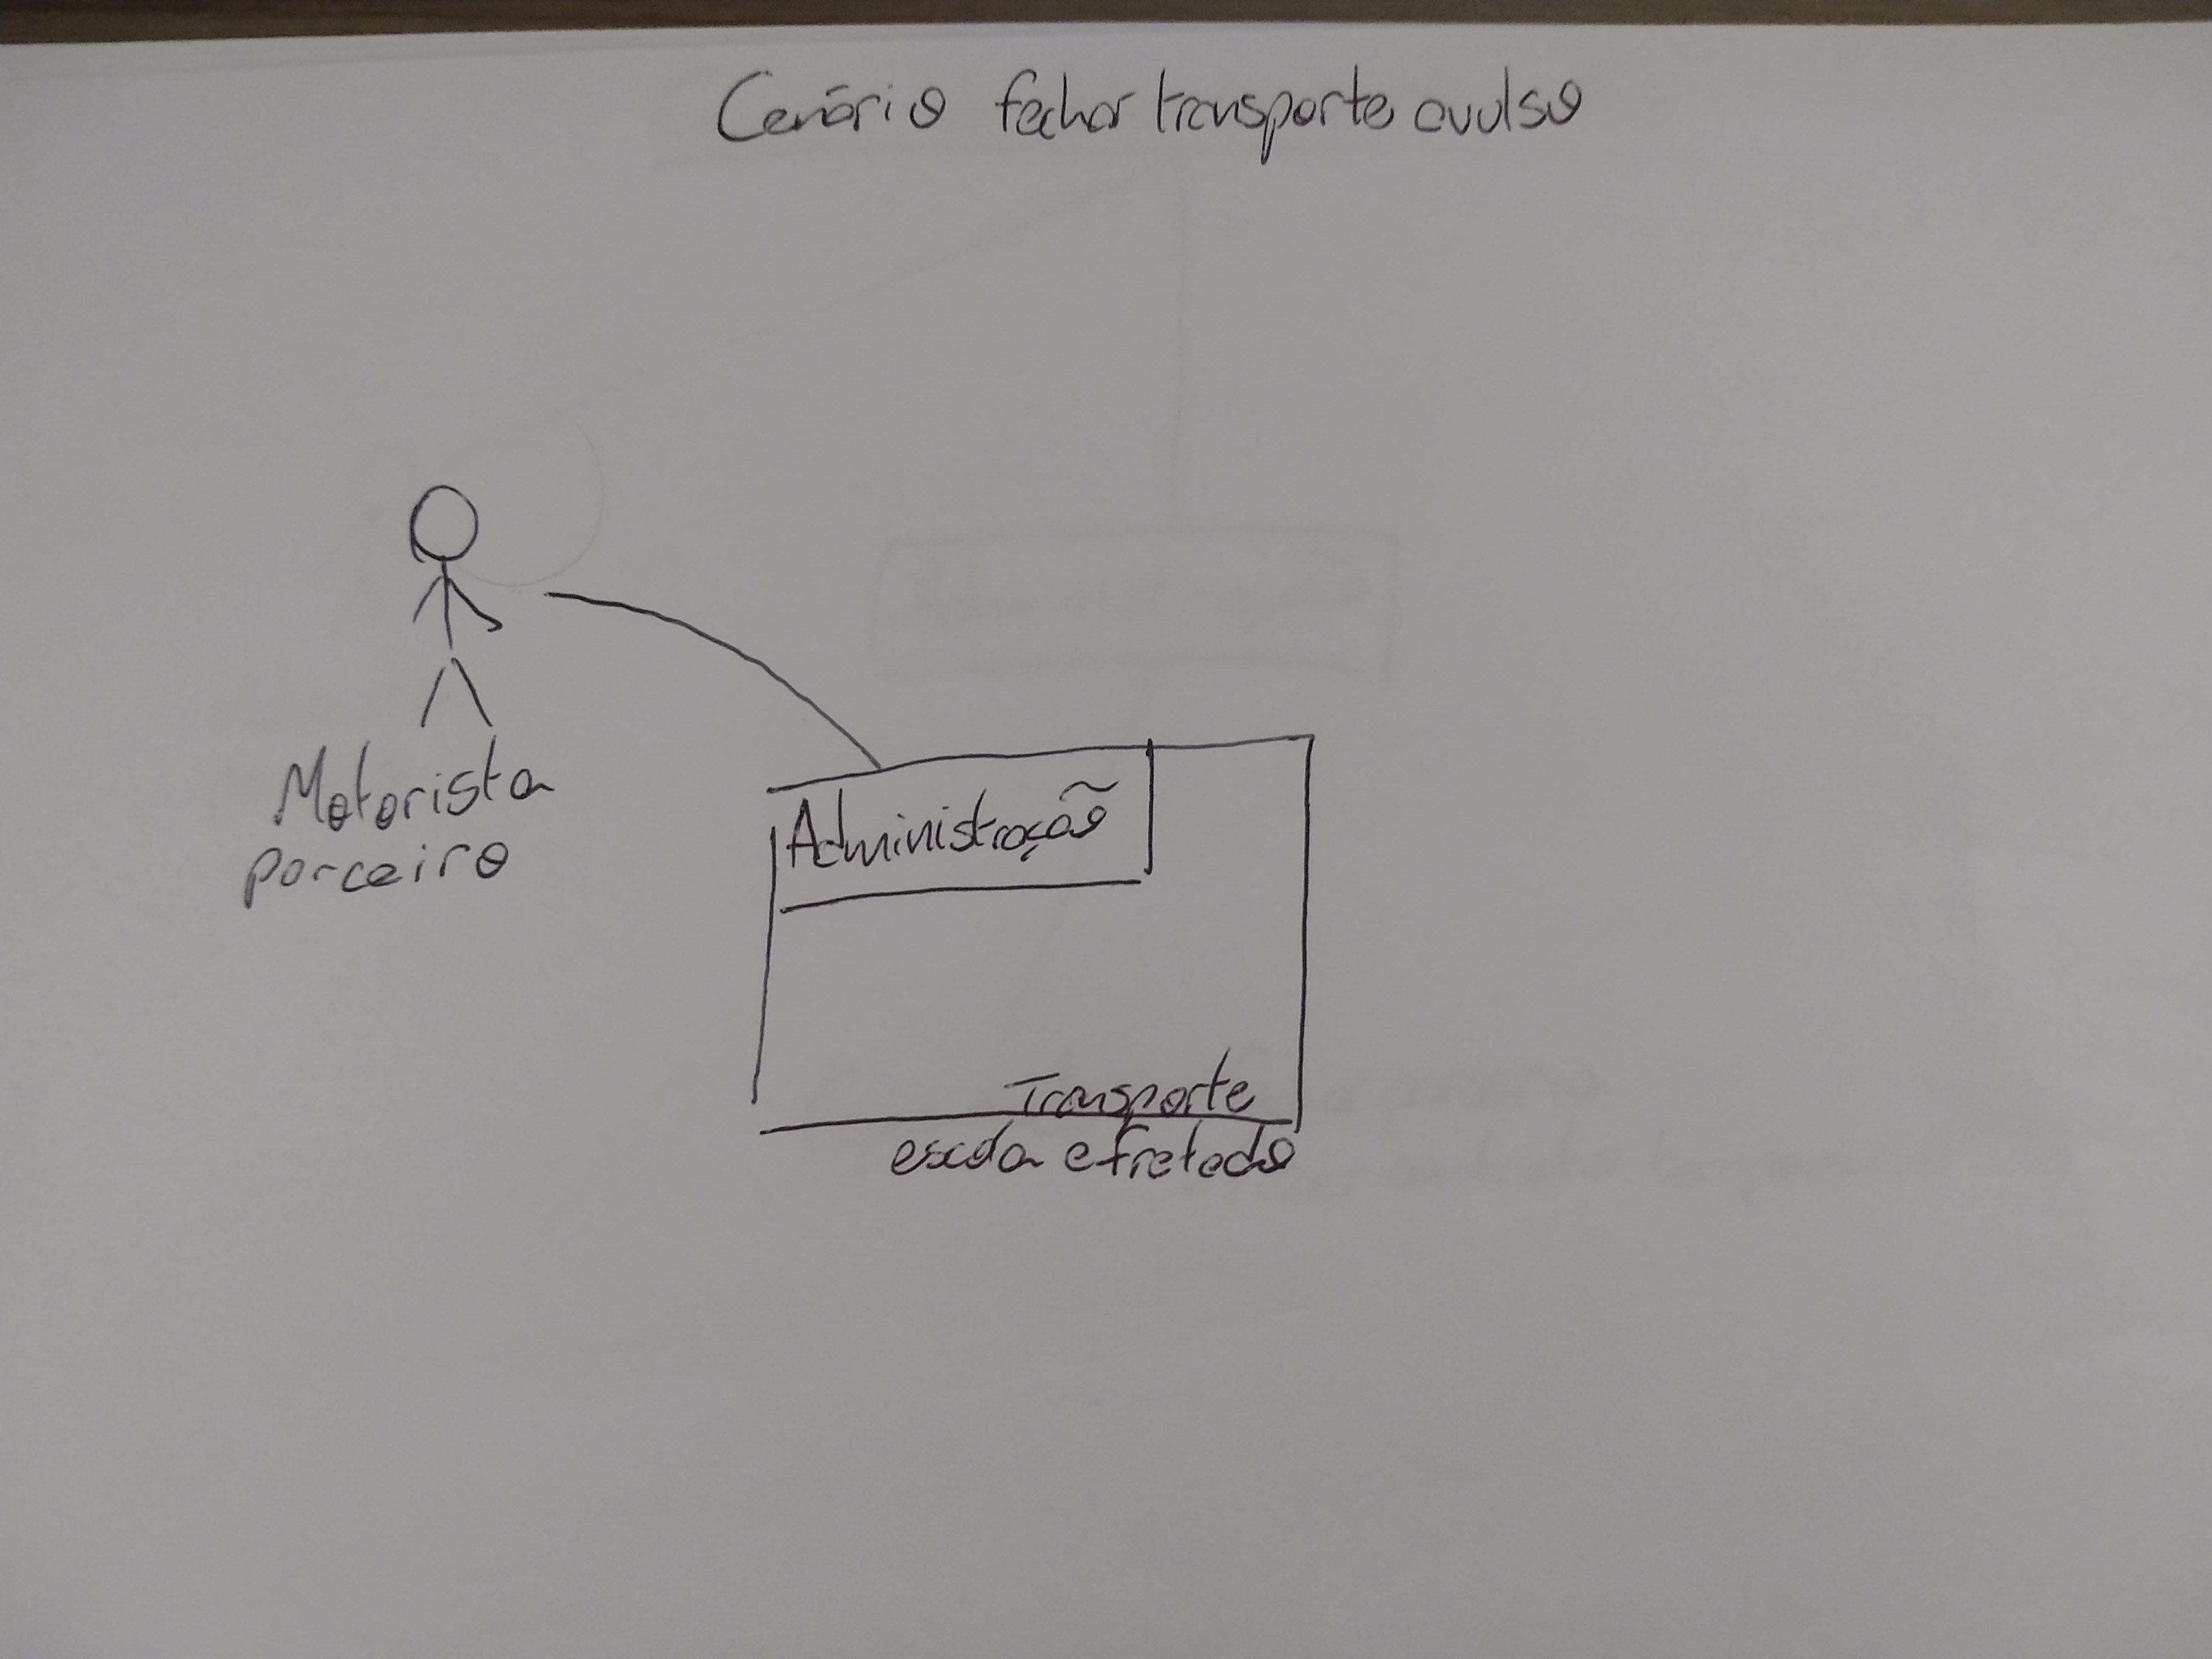 Cenário fechar transporte avulso
Motorista
parceiro
Administração
Transporte
escola e fretado